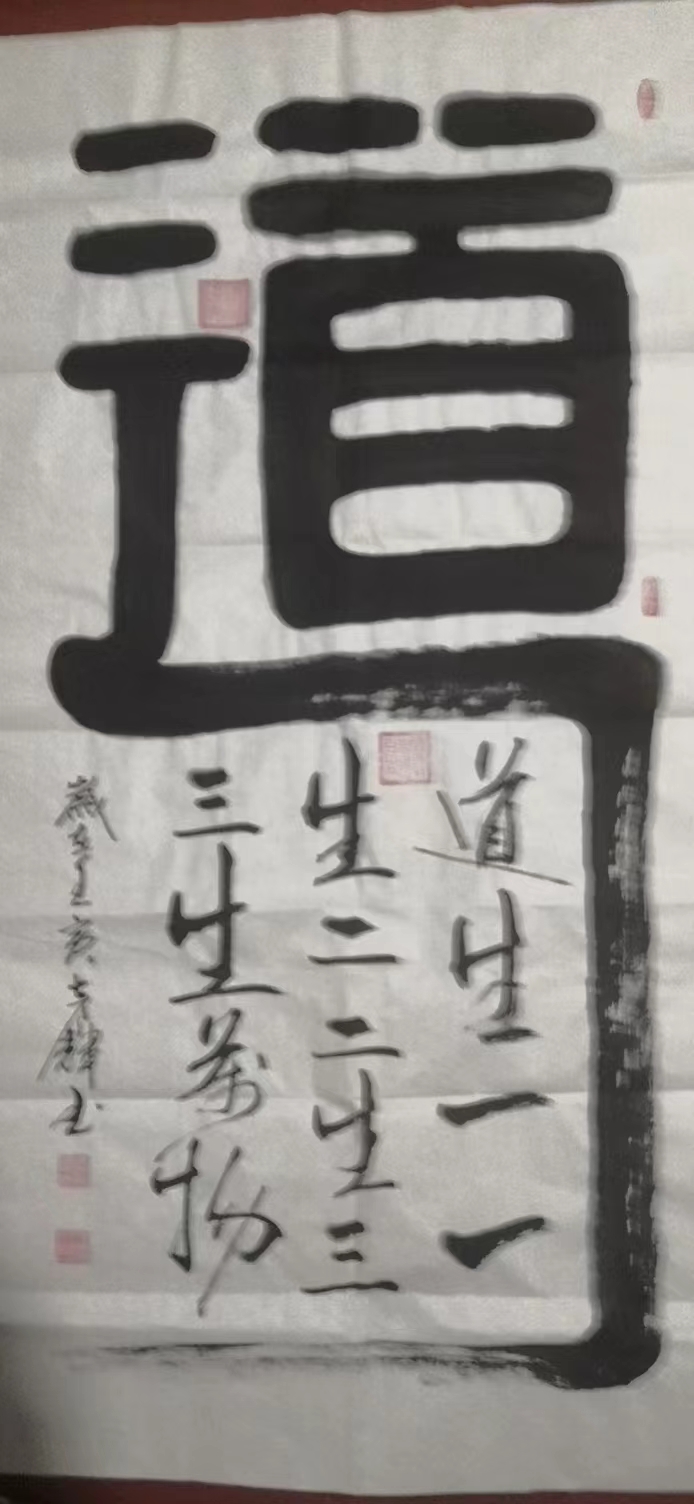 道
道生一一
生二二生三
三生万物
歲在
書